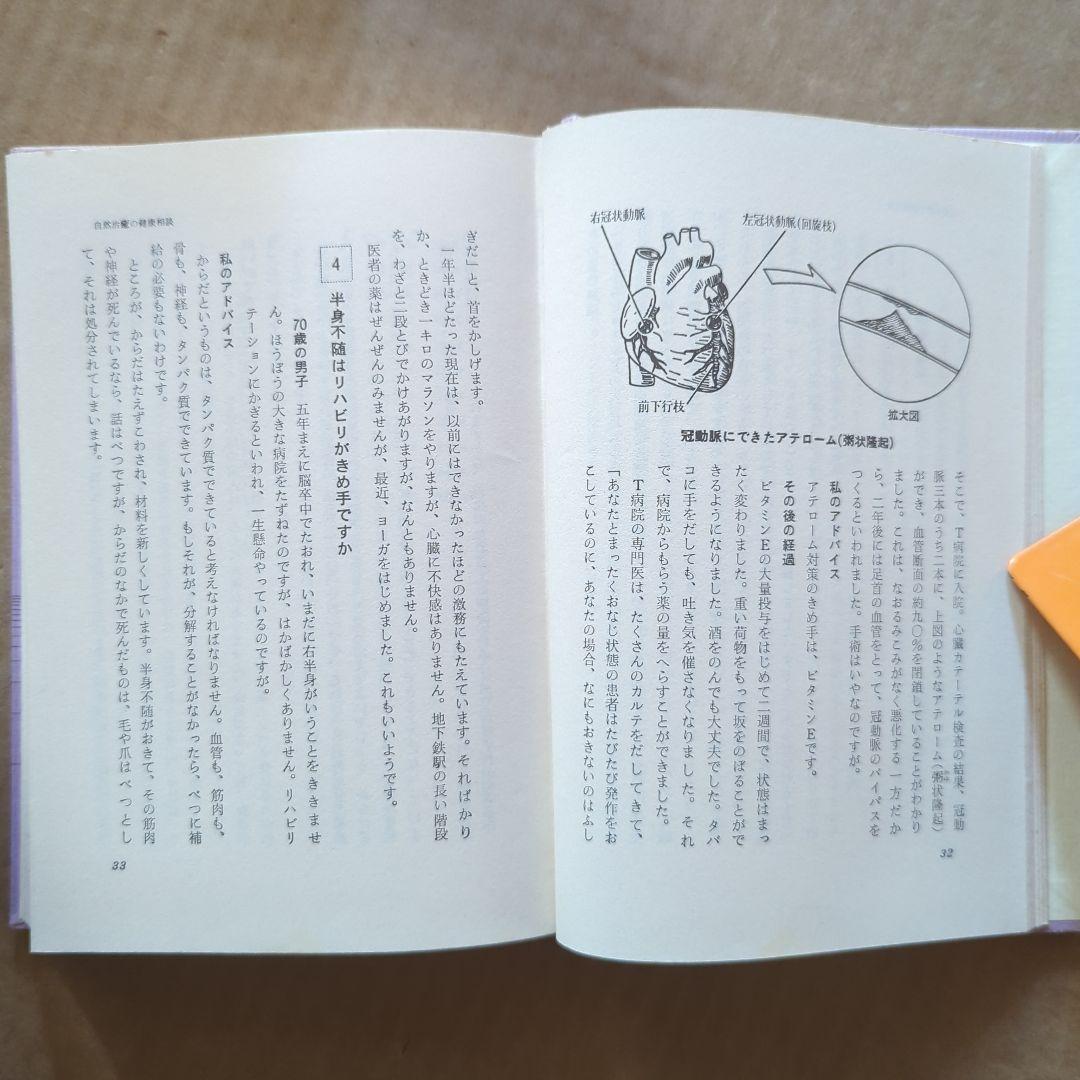 右冠状動脈
左冠状動脈(回旋枝)
前下行枝
拡大図
冠動脈にできたアテローム(粥状隆起)
そこで、T病院に入院。心臓カテーテル検査の結果、冠動
脈三本のうち二本に、上図のようなアテローム(粥状隆起)
ができ、血管断面の約九〇%を閉鎖していることがわかり
ました。これは、なおるみこみがなく悪化する一方だか
ら、二年後には足首の血管をとって、冠動脈のバイパスを
つくるといわれました。手術はいやなのですが。
私のアドバイス
アテローム対策のきめ手は、ビタミンEです。
その後の経過
ビタミンEの大量投与をはじめて二週間で、状態はまっ
たく変わりました。重い荷物をもって坂をのぼることがで
きるようになりました。酒をのんでも大丈夫でした。タバ
コに手をだしても、吐き気を催さなくなりました。それ
で、病院からもらう薬の量をへらすことができました。
T病院の専門医は、たくさんのカルテをだしてきて、
「あなたとまったくおなじ状態の患者はたびたび発作をお
こしているのに、あなたの場合、なにもおきないのはふし
32
自然治癒の健康相談
ぎだ」と、首をかしげます。
一年半ほどたった現在は、以前にはできなかったほどの激務にもたえています。そればかり
か、ときどき一キロのマラソンをやりますが、心臓に不快感はありません。地下鉄駅の長い階段
を、わざと二段とびでかけあがりますが、なんともありません。
医者の薬はぜんぜんのみませんが、最近、ヨーガをはじめました。これもいいようです。
4 半身不随はリハビリがきめ手ですか
70歳の男子 五年まえに脳卒中でたおれ、いまだに右半身がいうことをききませ
ん。ほうぼうの大きな病院をたずねたのですが、はかばかしくありません。リハビリ
テーションにかぎるといわれ、一生懸命やっているのですが。
私のアドバイス
からだというものは、タンパク質でできていると考えなければなりません。血管も、筋肉も、
骨も、神経も、タンパク質でできています。もしそれが、分解することがなかったら、べつに補
給の必要もないわけです。
ところが、からだはたえずこわされ、材料を新しくしています。半身不随がおきて、その筋肉
や神経が死んでいるなら、話はべつですが、からだのなかで死んだものは、毛や爪はべつとし
て、それは処分されてしまいます。
33